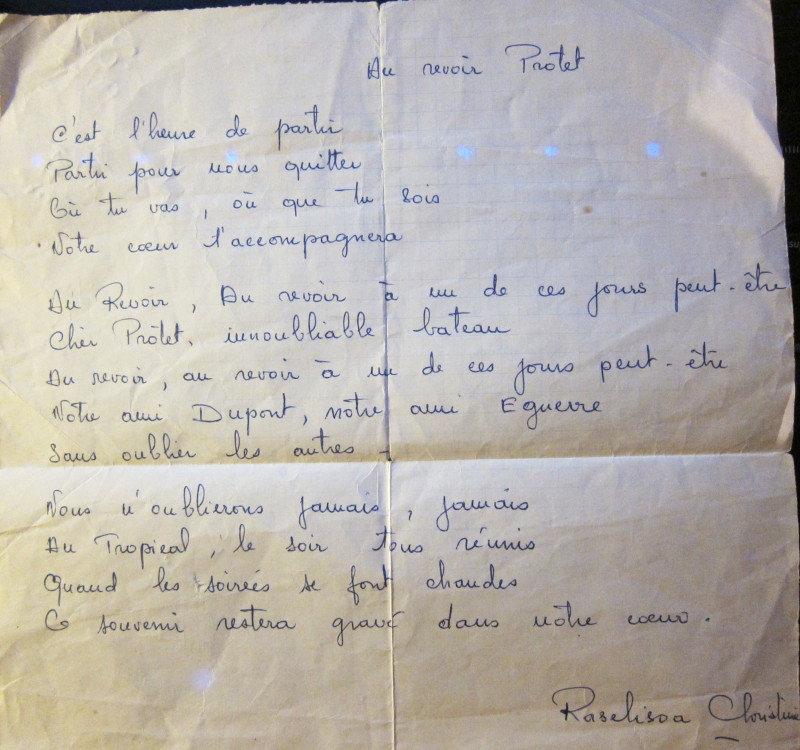 Au revoir Protet
C'est l'heure de partir
Partir pour nous quitter
Où tu vas, où que tu sois
Notre cœur t'accompagnera
Au Revoir, Au revoir à un de ces jours peut-être
Cher Protet, innoubliable bateau
Au revoir, au revoir à un de ces jours peut-être
Notre ami Dupont, notre ami Eguerre
Sans oublier les autres -
Nous n'oublierons jamais, jamais
Au Tropical, le soir tous réunis
Quand les soirées se font chaudes
Ce souvenir restera gravé dans notre cœur.
Raselisoa Christine